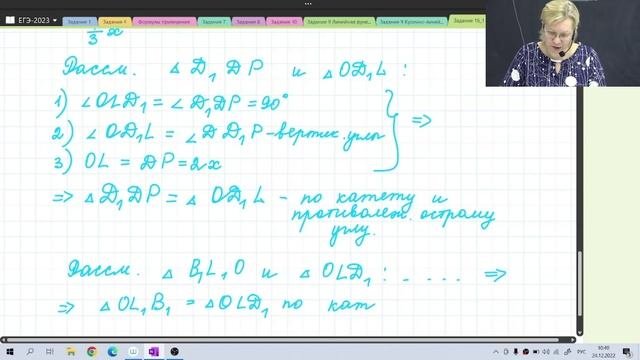 ЕГЭ-2023
Задание 1 Задание 4 Формулы приведения Задание 5 Задание 6 Задание 7 Задание 8 Задание 9 Линейная фун... Задание 9 Кусочно-линей... Задание 15_1
1/3 x
Рассм. △ D₁DP и △ OD₁L :
1) ∠OLD₁ = ∠D₁DP = 90°
2) ∠OD₁L = ∠DD₁P - вертик. углы
3) OL = DP = 2x
} ⇒
⇒ △ D₁DP = △ OD₁L - по катету и
противолеж. острому
углу.
Рассм. △ B₁L₁O и △ OLD₁ : - . . . . ⇒
⇒ △ OL₁B₁ = △ OLD₁ по кат
РУС
10:40
24.12.2022